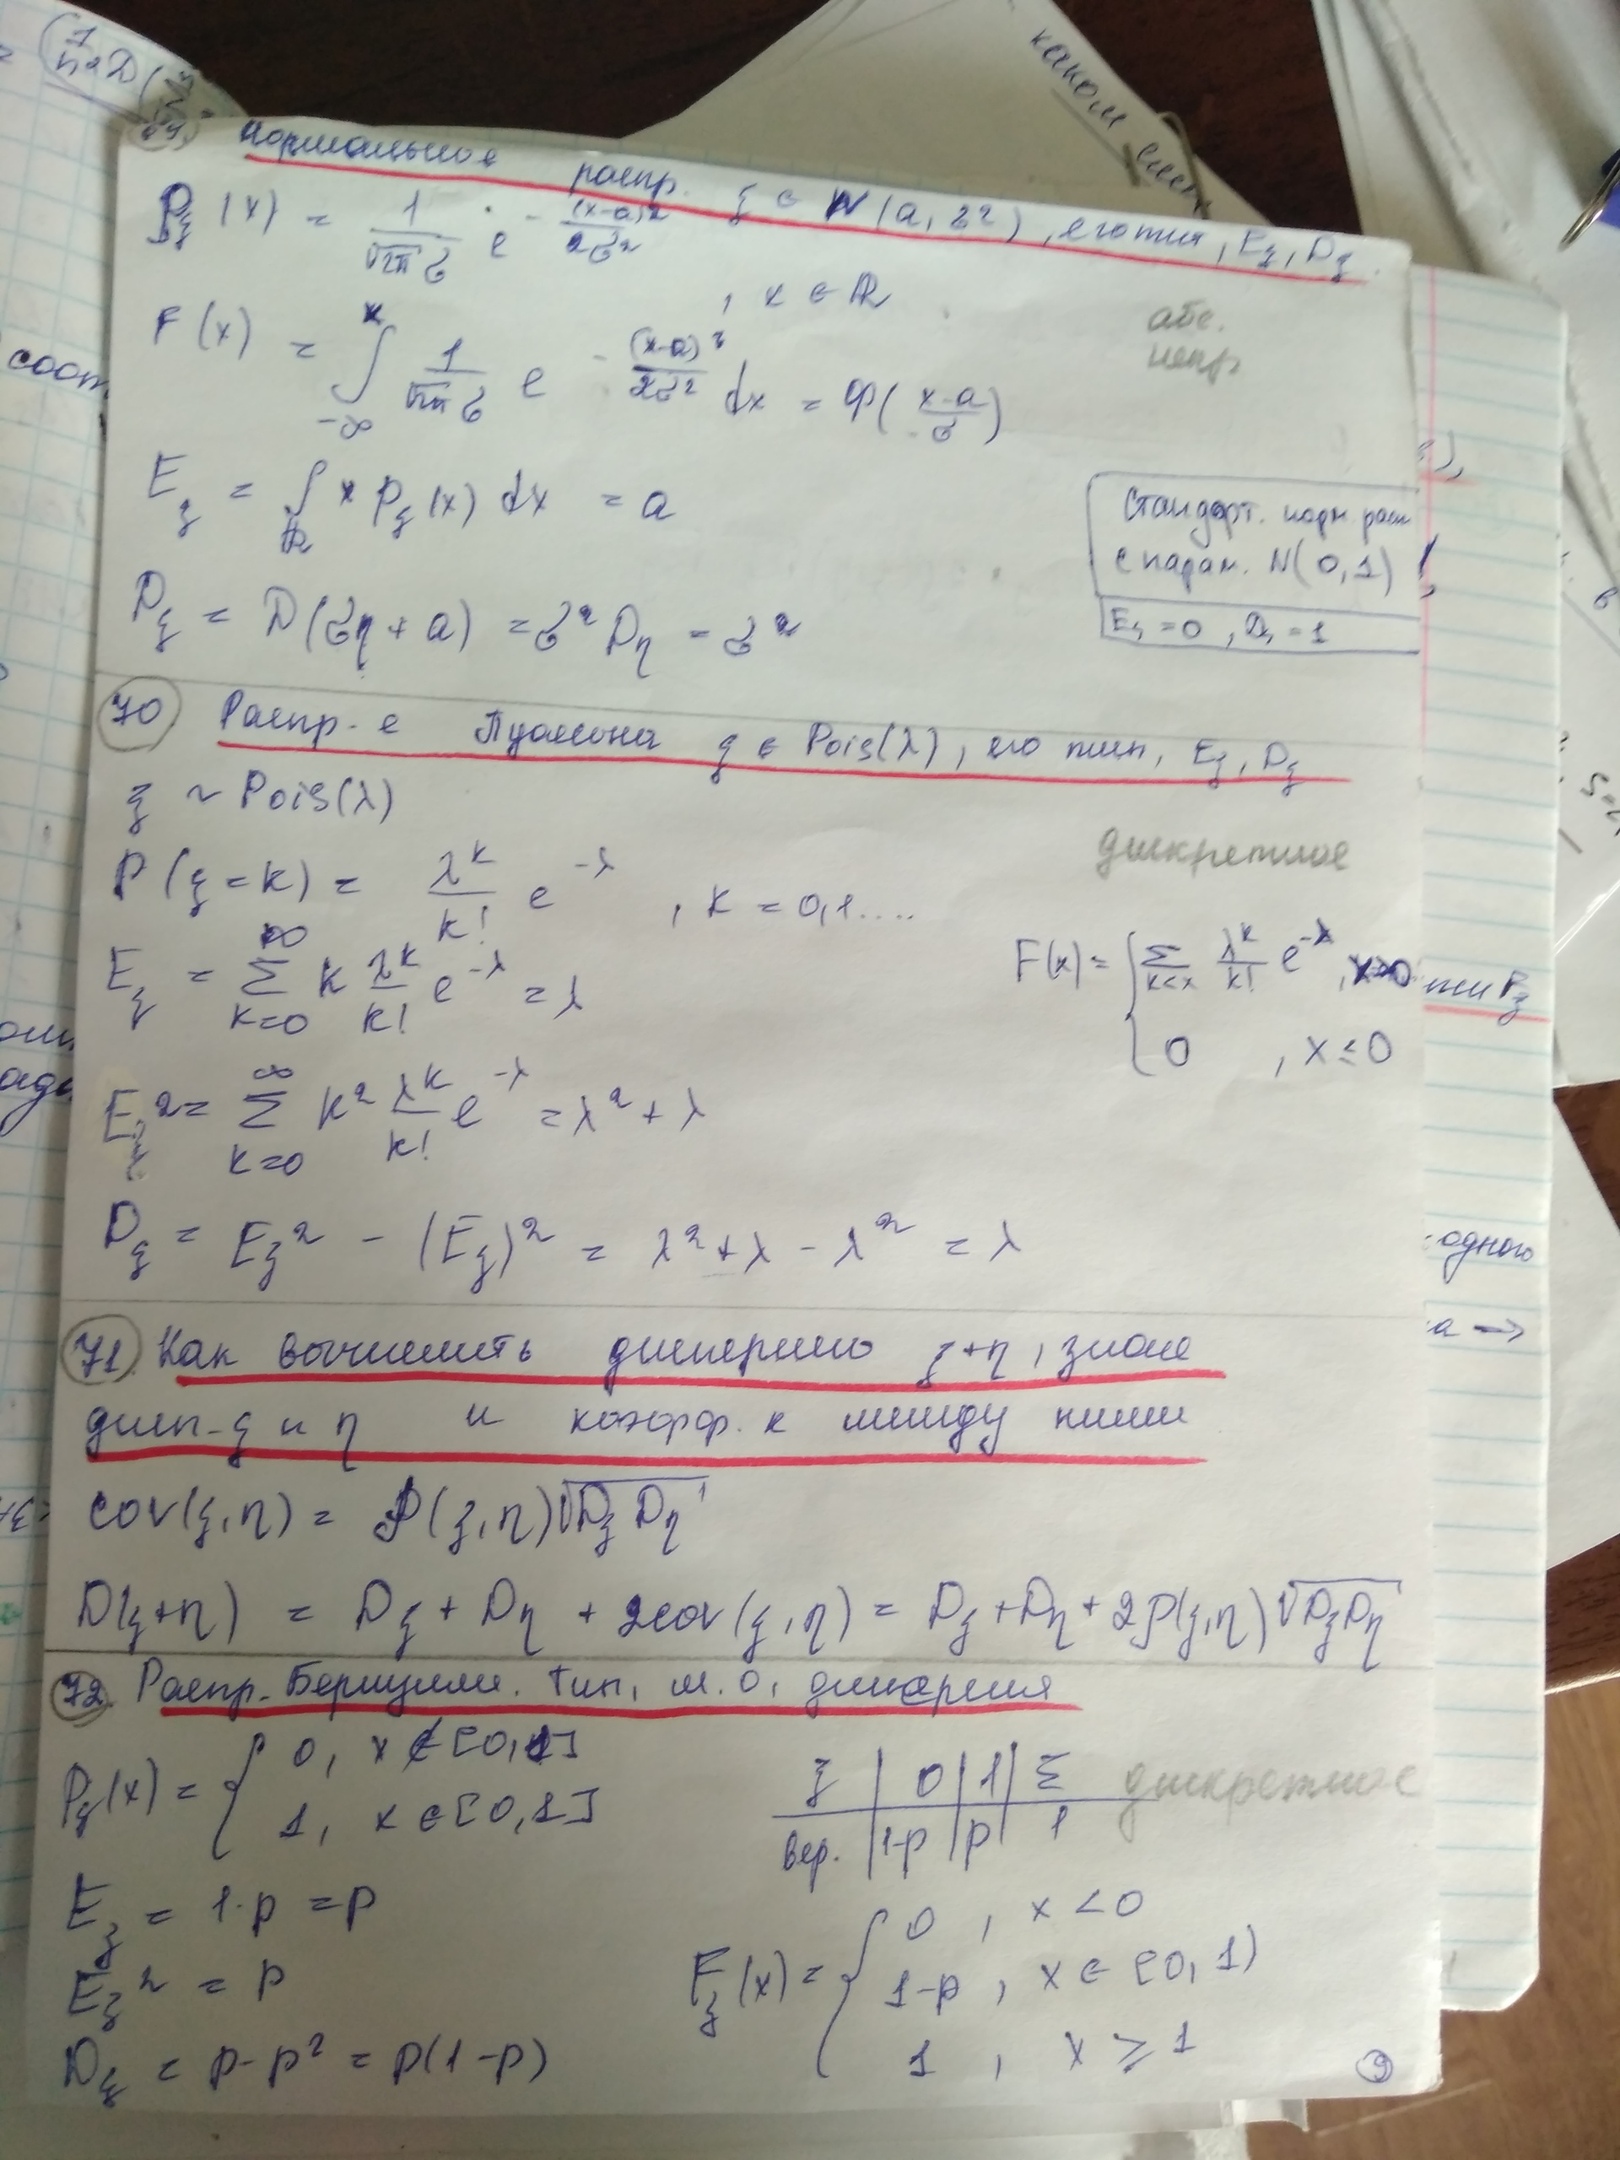 Нормальное распр. ξ ∈ N(a, σ²), его тип, Eξ, Dξ.
Pξ(x) = 1/(√2π σ) · e^(-(x-a)²/2σ²), x ∈ R
абс.
непр
F(x) = ∫_{-∞}^{x} 1/(√2π σ) e^(-(x-a)²/2σ²) dx = Ф((x-a)/σ)
Eξ = ∫_R x Pξ(x) dx = a
Стандарт. норм расп
с парам. N(0,1)
Eξ = 0, Dξ = 1
Dξ = D(ση + a) = σ² Dη = σ²
70 Распр-е Пуассона ξ ∈ Pois(λ), его тип, Eξ, Dξ
ξ ~ Pois(λ)
дискретное
P(ξ=k) = λ^k/k! e^-λ, k = 0,1....
F(x) = { Σ_{k<x} λ^k/k! e^-λ, x>0
0, x ≤ 0
Eξ = Σ_{k=0}^{∞} k λ^k/k! e^-λ = λ
Eξ² = Σ_{k=0}^{∞} k² λ^k/k! e^-λ = λ² + λ
Dξ = Eξ² - (Eξ)² = λ² + λ - λ² = λ
71 Как вычислить дисперсию ξ+η, зная
дисп-ξ и η и коэфф. к между ними
cov(ξ,η) = ρ(ξ,η)√DξDη
D(ξ+η) = Dξ + Dη + 2cov(ξ,η) = Dξ + Dη + 2ρ(ξ,η)√DξDη
72. Распр. Бернулли. Тип, м.О, дисперсия
Pξ(x) = { 0, x ∉ [0,1]
1, x ∈ [0,1]
ξ | 0 | 1 | Σ
вер. | 1-p | p | 1
дискретное
Eξ = 1·p = p
Eξ² = p
Dξ = p - p² = p(1-p)
Fξ(x) = { 0, x < 0
1-p, x ∈ [0,1)
1, x ≥ 1
9
каком
соот
одного
а →